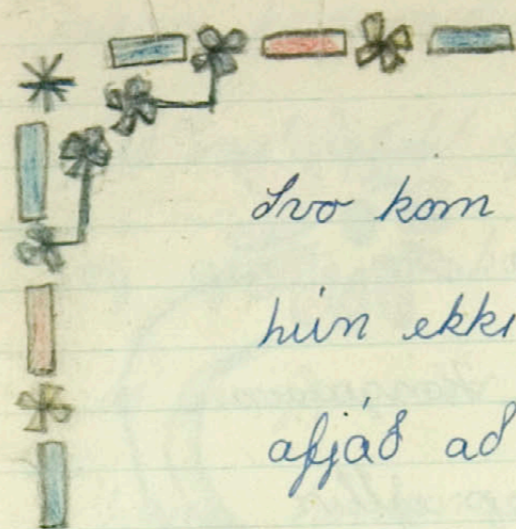 Svo kom
hún ekki
afjáð að